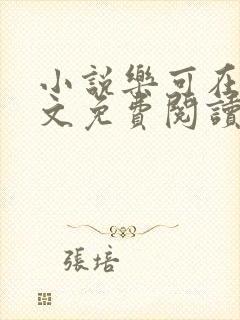 小說樂可在
文免費閱讀
張培